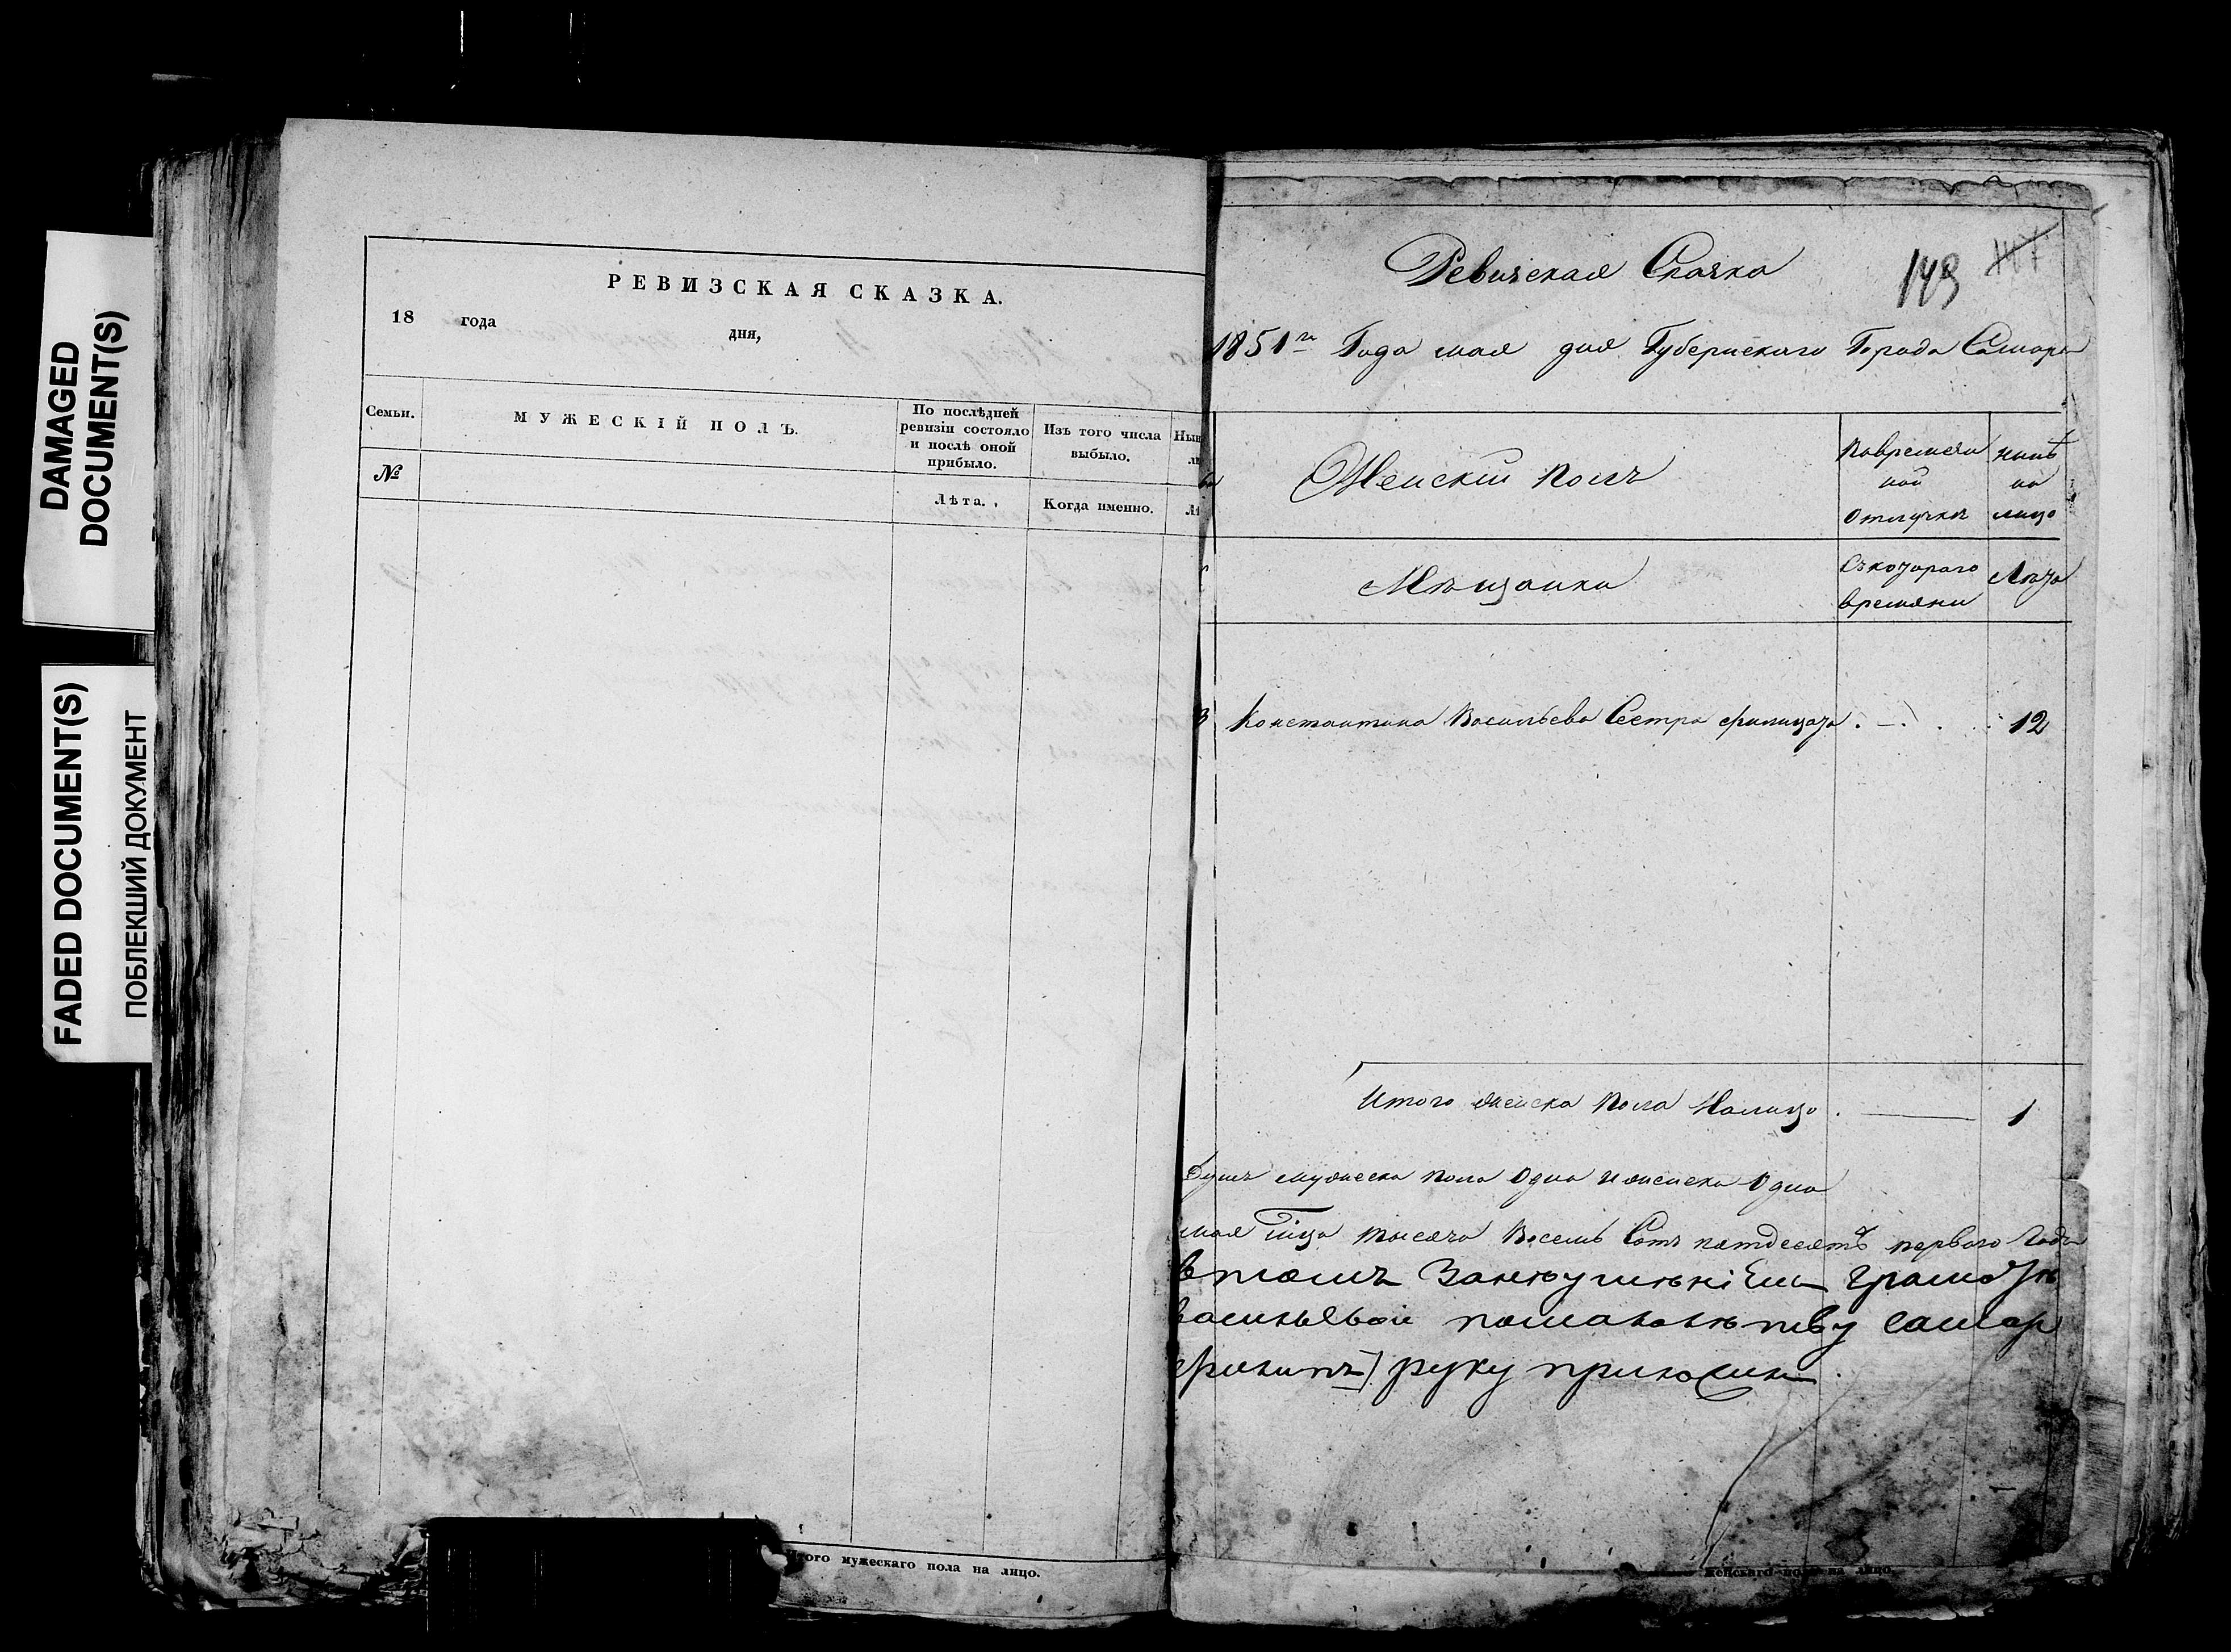 DAMAGED
DOCUMENT(S)
FADED DOCUMENT(S)
ПОБЛЕКШИЙ ДОКУМЕНТ
РЕВИЗСКАЯ СКАЗКА.
18 года дня,
Семьи.
МУЖЕСКІЙ ПОЛЪ.
По послѣдней
ревизіи состояло
и послѣ оной
прибыло.
Изъ того числа
выбыло.
№
Лѣта.
Когда именно.
Итого мужескаго пола на лицо.
Ревизская Сказка
149
1851го Года мая дня Губернскаго Города Самары
Женскій полъ
Вовремен
ной
отлучкѣ
нынѣ
на
лицо
Мѣщанки
Съкотораго
времяни
Лѣта
3 Константина Васильева Сестра Филицата . — . 12
Итого женска пола Налицо . — 1
Душъ мужеска пола Одна и женска Одна
мая тысяча Восемь Сотъ пятдесятъ первого Года
руку приложил
женскаго пола на лицо.